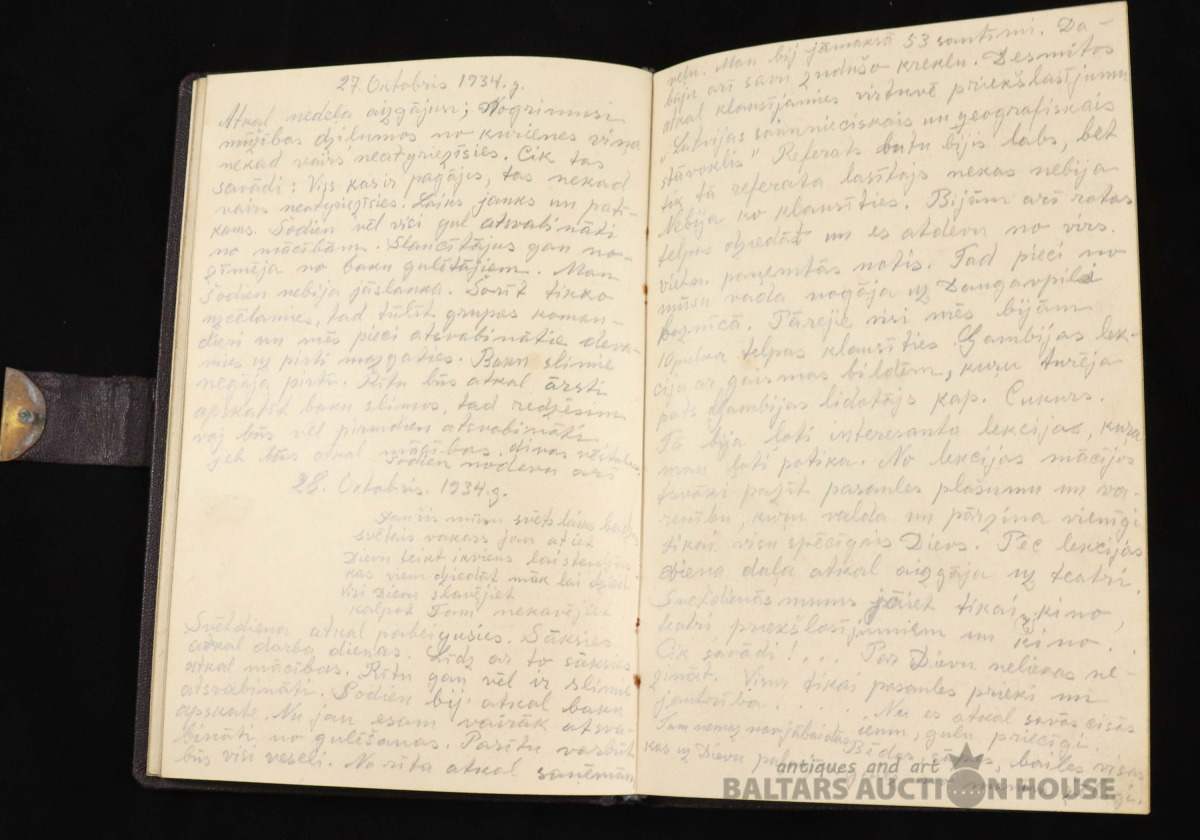 27. Octobris 1934. g.
Atkal nedeļa aizgājusi; Nogrimusi
mūžības dziļumos no kurienes viņa
nekad vairs neatgriezīsies. Cik tas
savādi: Viss kas ir pagājis, tas nekad
vairs neatgriezīsies. Laiks jauks un patī-
kams. Šodien vēl visi guļ atsvabināti
no mācībām. Slaucītājus gan no-
zīmēja no baku gulētājiem. Man
šodien nebija jāslauka. Šorīt tikko
uzcēlamies, tad tūlīt grupas koman-
dieri un mēs pieci atsvabinātie deva-
mies uz pirti mazgāties. Baku slimie
negāja pirtī. Rītu būs atkal ārsti
apskatīt baku slimos, tad redzēsim
vaj būs vēl pirmdien atsvabināti
jeb būs atkal mācības.
Šodien nodevu arī
28. Octobris. 1934. g.
mūsu svēts laiks
svētais vakars jau atiet
Dievu teikt ikviens lai
kas vien dziedāt māk lai dzied
Visi Dievu slavējiet
kalpot Tam nekavējiet
Svētdiena atkal pabeigusies. Sāksies
atkal darba dienas. Līdz ar to sāksies
atkal mācības. Rītu gan vēl ir slimie
atsvabināti. Šodien bij atkal baku
apskate. Nu jau esam vairāk atsva-
bināti no gulēšanas. Parītu varbūt
būs visi veseli. No rīta atkal saņēmām
veļu. Man bij jāmaksā 53 santimi. Da-
būja arī savu zudušo kreklu. Desmitos
atkal klausījamies virtuvē priekšlasījumu
"Latvijas saimnieciskais un geografiskais
stāvoklis" Referats butu bijis labs, bet
tik tā referata lasītājs nekas nebija
Nebija ko klausīties. Bijām arī rotas
telpās dziedāt un es atdevu no virs.
vietn. paņemtās notis. Tad pieci no
mūsu vada nogāja uz Daugavpils
baznīcā. Pārējie visi mēs bijām
10 pulka telpās klausīties Gambijas lek-
cija ar gaismas bildēm, kuru turēja
pats Gambijas lidotājs kap. Cukurs.
Tā bija ļoti interesanta lekcijas, kura
man ļoti patika. No lekcijas mācijos
tuvāki pazīt pasaules plašumu un va-
renību, kuru valda un pārzina vienīgi
tikai visu spēcīgais Dievs. Pēc lekcijas
viena daļa atkal aizgāja uz teatri.
Svētdienās mums jāiet tikai kino,
teatri, priekšlasījumiem un kino.
Cik savādi! . . . Par Dievu neliekas ne-
zināt. Visur tikai pasaules prieki un
jautrība . . . . . Nu es atkal savās cisās
Tam nemaz nav jābaidās
kas uz Dievu
bailes visas
antiques and art
BALTARS AUCTION HOUSE